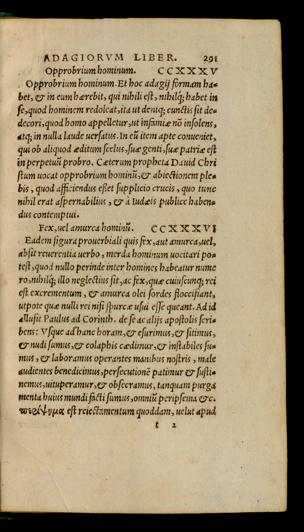 ADAGIORVM LIBER. 291
Opprobrium hominum. CCXXXV
Opprobrium hominum. Et hoc adagij formam ha-
bet, & in eum hærebit, qui nihili est, nihilq; habet in
se, quod hominem redoleat, ita ut deniq; cunctis sit de-
decori, quod homo appelletur, ut infamiæ nõ insolens,
atq; in nulla laude uersatus. In eũ item apte conueniet,
qui ob aliquod æditum scelus, suæ genti, suæ patriæ est
in perpetuũ probro. Cæterum propheta Dauid Chri
stum uocat opprobrium hominũ, & abiectionem ple-
bis, quod afficiendus esset supplicio crucis, quo tunc
nihil erat aspernabilius, & à Iudæis publice haben-
dus contemptui.
Fex, uel amurca hominũ. CCXXXVI
Eadem figura prouerbiali quis fex, aut amurca, uel,
absit reuerentia uerbo, merda hominum uocitari po-
test, quod nullo perinde inter homines habeatur nume
ro, nihilq; illo neglectius sit, ac fex, quæ cuiuscunq; rei
est excrementum, & amurca olei sordes floccifiant,
utpote quæ nulli rei nisi spurcæ usui esse queant. Ad id
allusit Paulus ad Corinth. de se ac alijs apostolis scri
bens: Vsque ad hanc horam, & esurimus, & sitimus,
& nudi sumus, & colaphis cædimur, & instabiles su-
mus, & laboramus operantes manibus nostris, male
audientes benedicimus, persecutionẽ patimur & susti-
nemus, uituperamur, & obsecramus, tanquam purga
menta huius mundi facti sumus, omniũ peripsema &c.
est reiectamentum quoddam, uelut apud
t 2